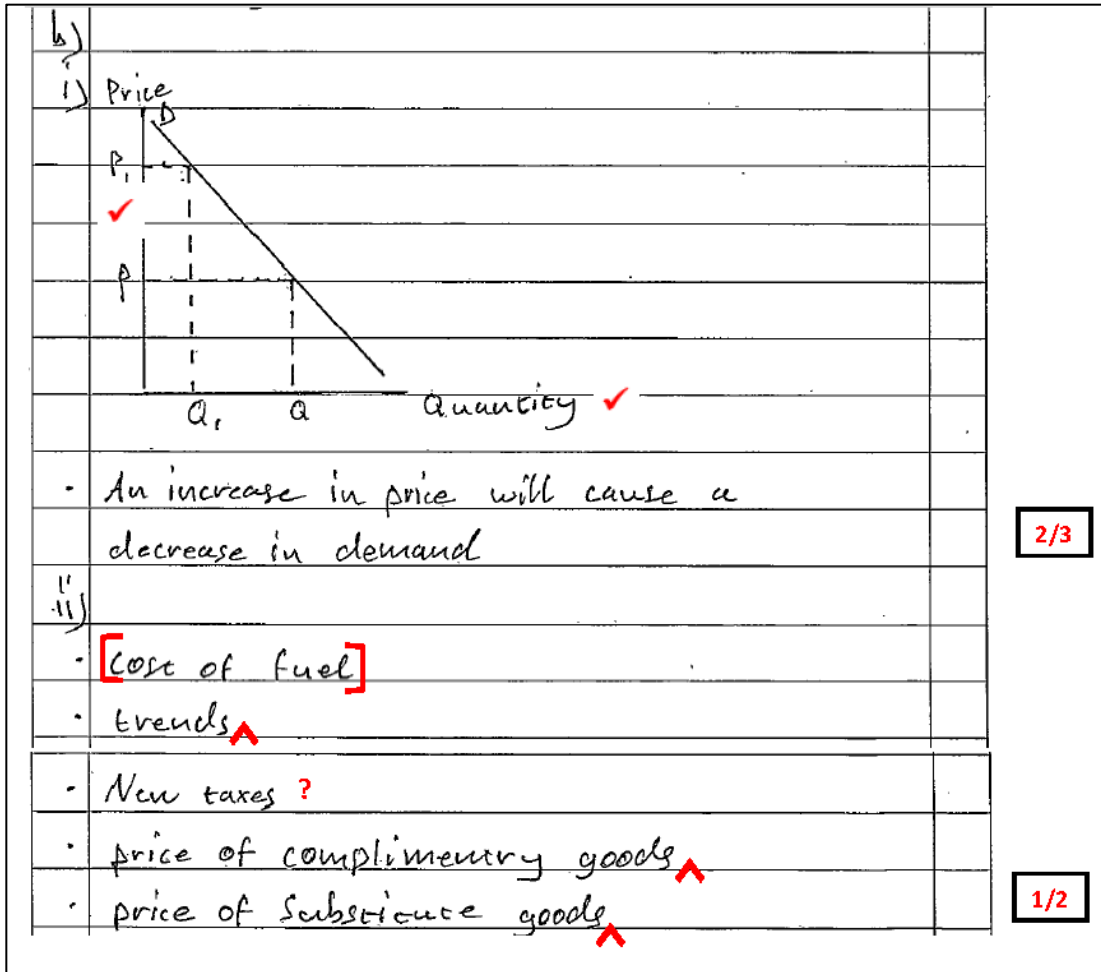 b)
i) Price
D
P₁
✓
P
Q₁ Q Quantity ✓
· An increase in price will cause a
decrease in demand
2/3
ii)
· [Cost of fuel]
· trends ^
· New taxes ?
· price of complimentry goods ^
· price of Substitute goods ^
1/2